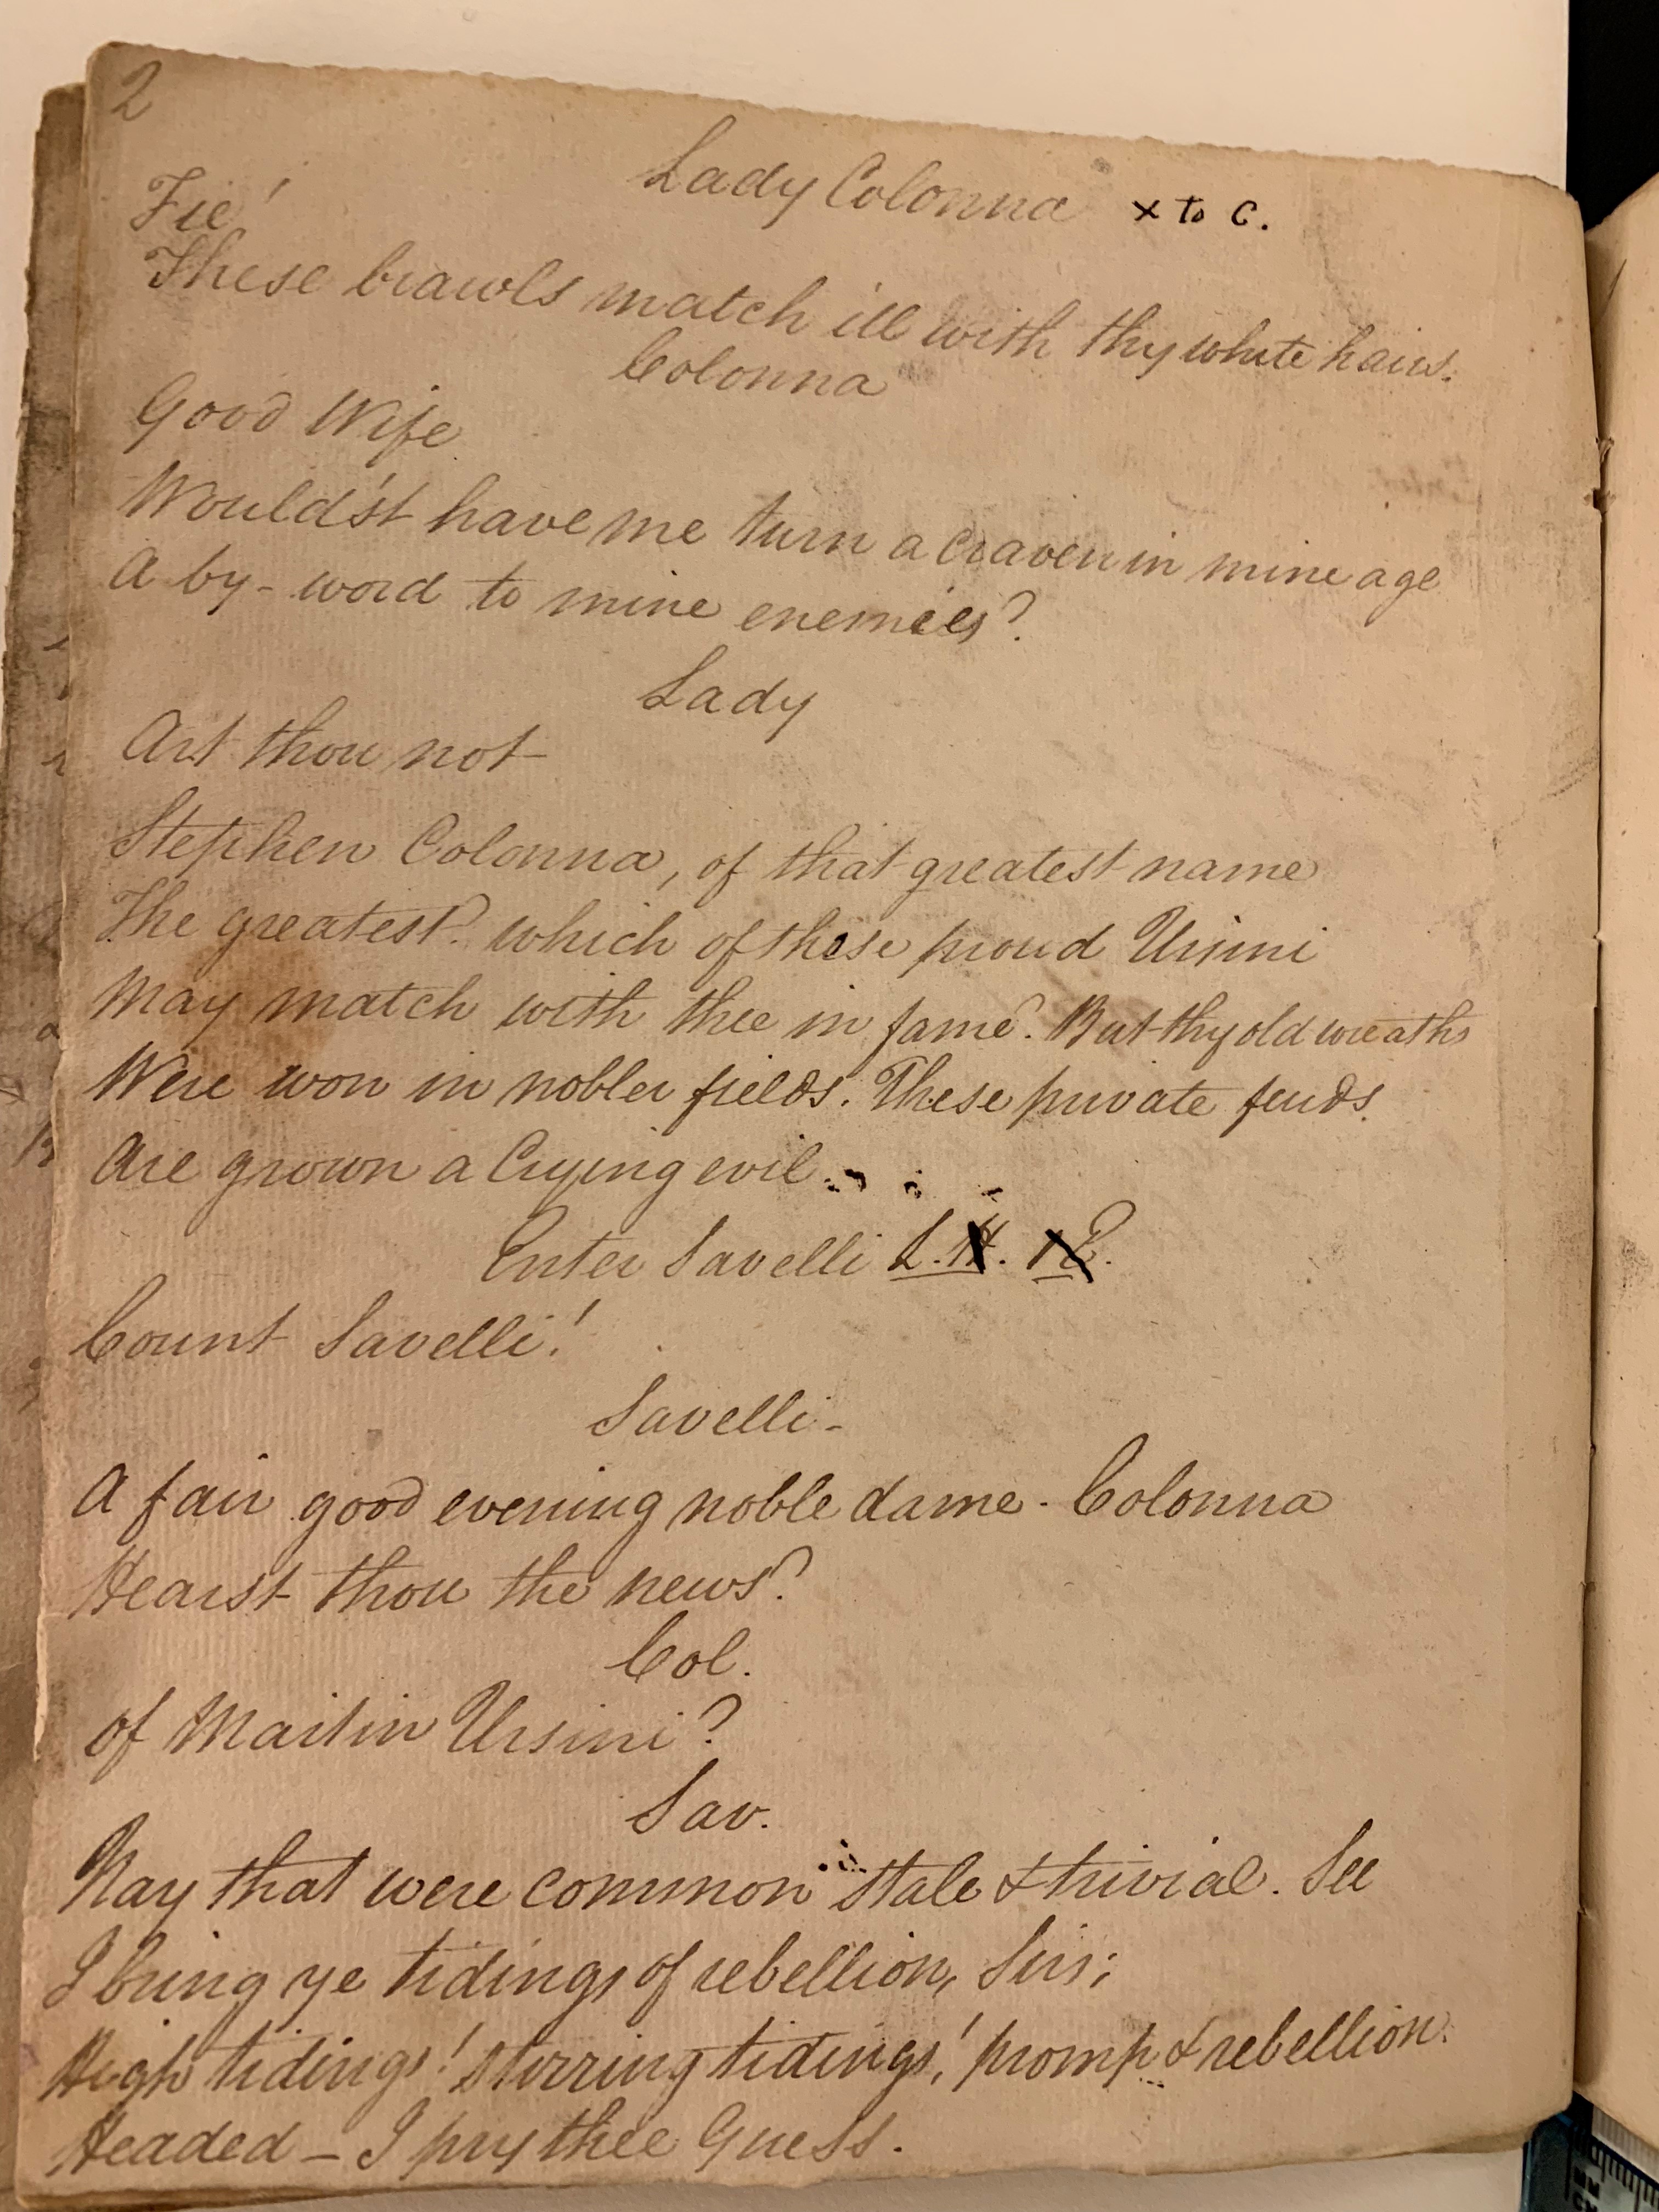 2
Lady Colonna x to C.
Fie!
These brawls match ill with thy white hairs.
Colonna
Good Wife
Would'st have me turn a craven in mine age
A by-word to mine enemies?
Lady
Art thou not
Stephen Colonna, of that greatest name
The greatest? which of these proud Ursini
May match with thee in fame? But thy old wreaths
Were won in nobler fields. These private feuds
Are grown a Crying evil.
Enter Savelli L.
Count Savelli!
Savelli-
A fair good evening noble dame. Colonna
Hearst thou the news?
Col.
of Martin Ursini?
Sav.
Nay that were common stale & trivial. See
I bring ye tidings of rebellion, Sirs;
High tidings! stirring tidings! promp & rebellion.
Headed – I prythee Guess.